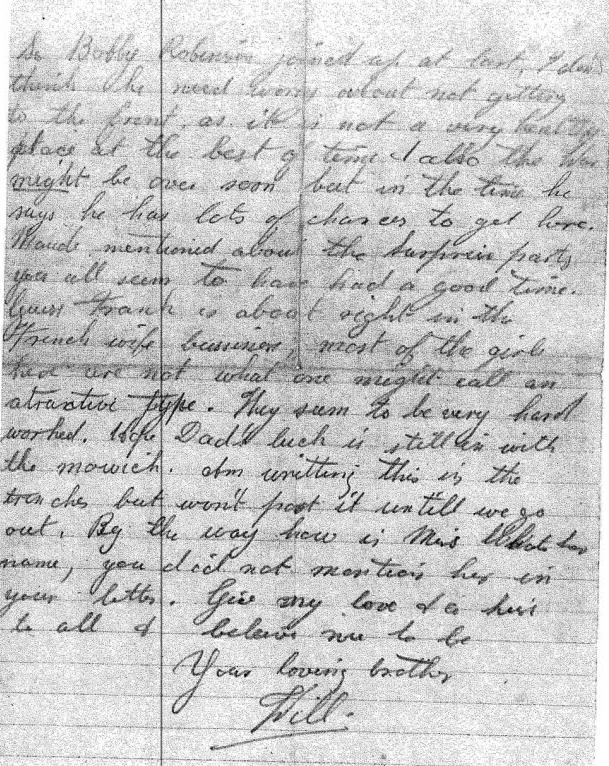 So Bobby Robinson joined up at last, I don't
think he need worry about not getting
to the front, as it is not a very healthy
place at the best of time & also the
might be over soon but in the time he
says he has lots of chances to get here.
Maude mentioned about the surprise party
you all seem to have had a good time.
Guess Frank is about right in the
French wife bussiness, most of the girls
here are not what one might call an
atractive type. They seem to be very hard
worked. Hope Dad's luck is still in with
the mowich. Am writting this in the
trenches but won't post it untill we go
out. By the way how is Mrs Whats her
name, you did not mention her in
your letter. Give my love & a kiss
to all & believe me to be
Your loving brother
Will.